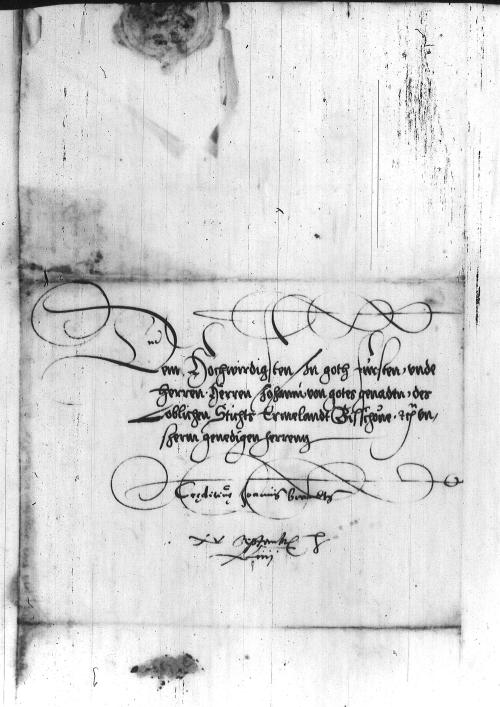 Dem Hochwirdigsten In goth fursten, unde
herren. Herren Johanni von gotes genaden, des
Loblichen Stichts Ermelandt Bisschove. etc un,
sherm genedigen herrenn
Joannis
xv Septembris